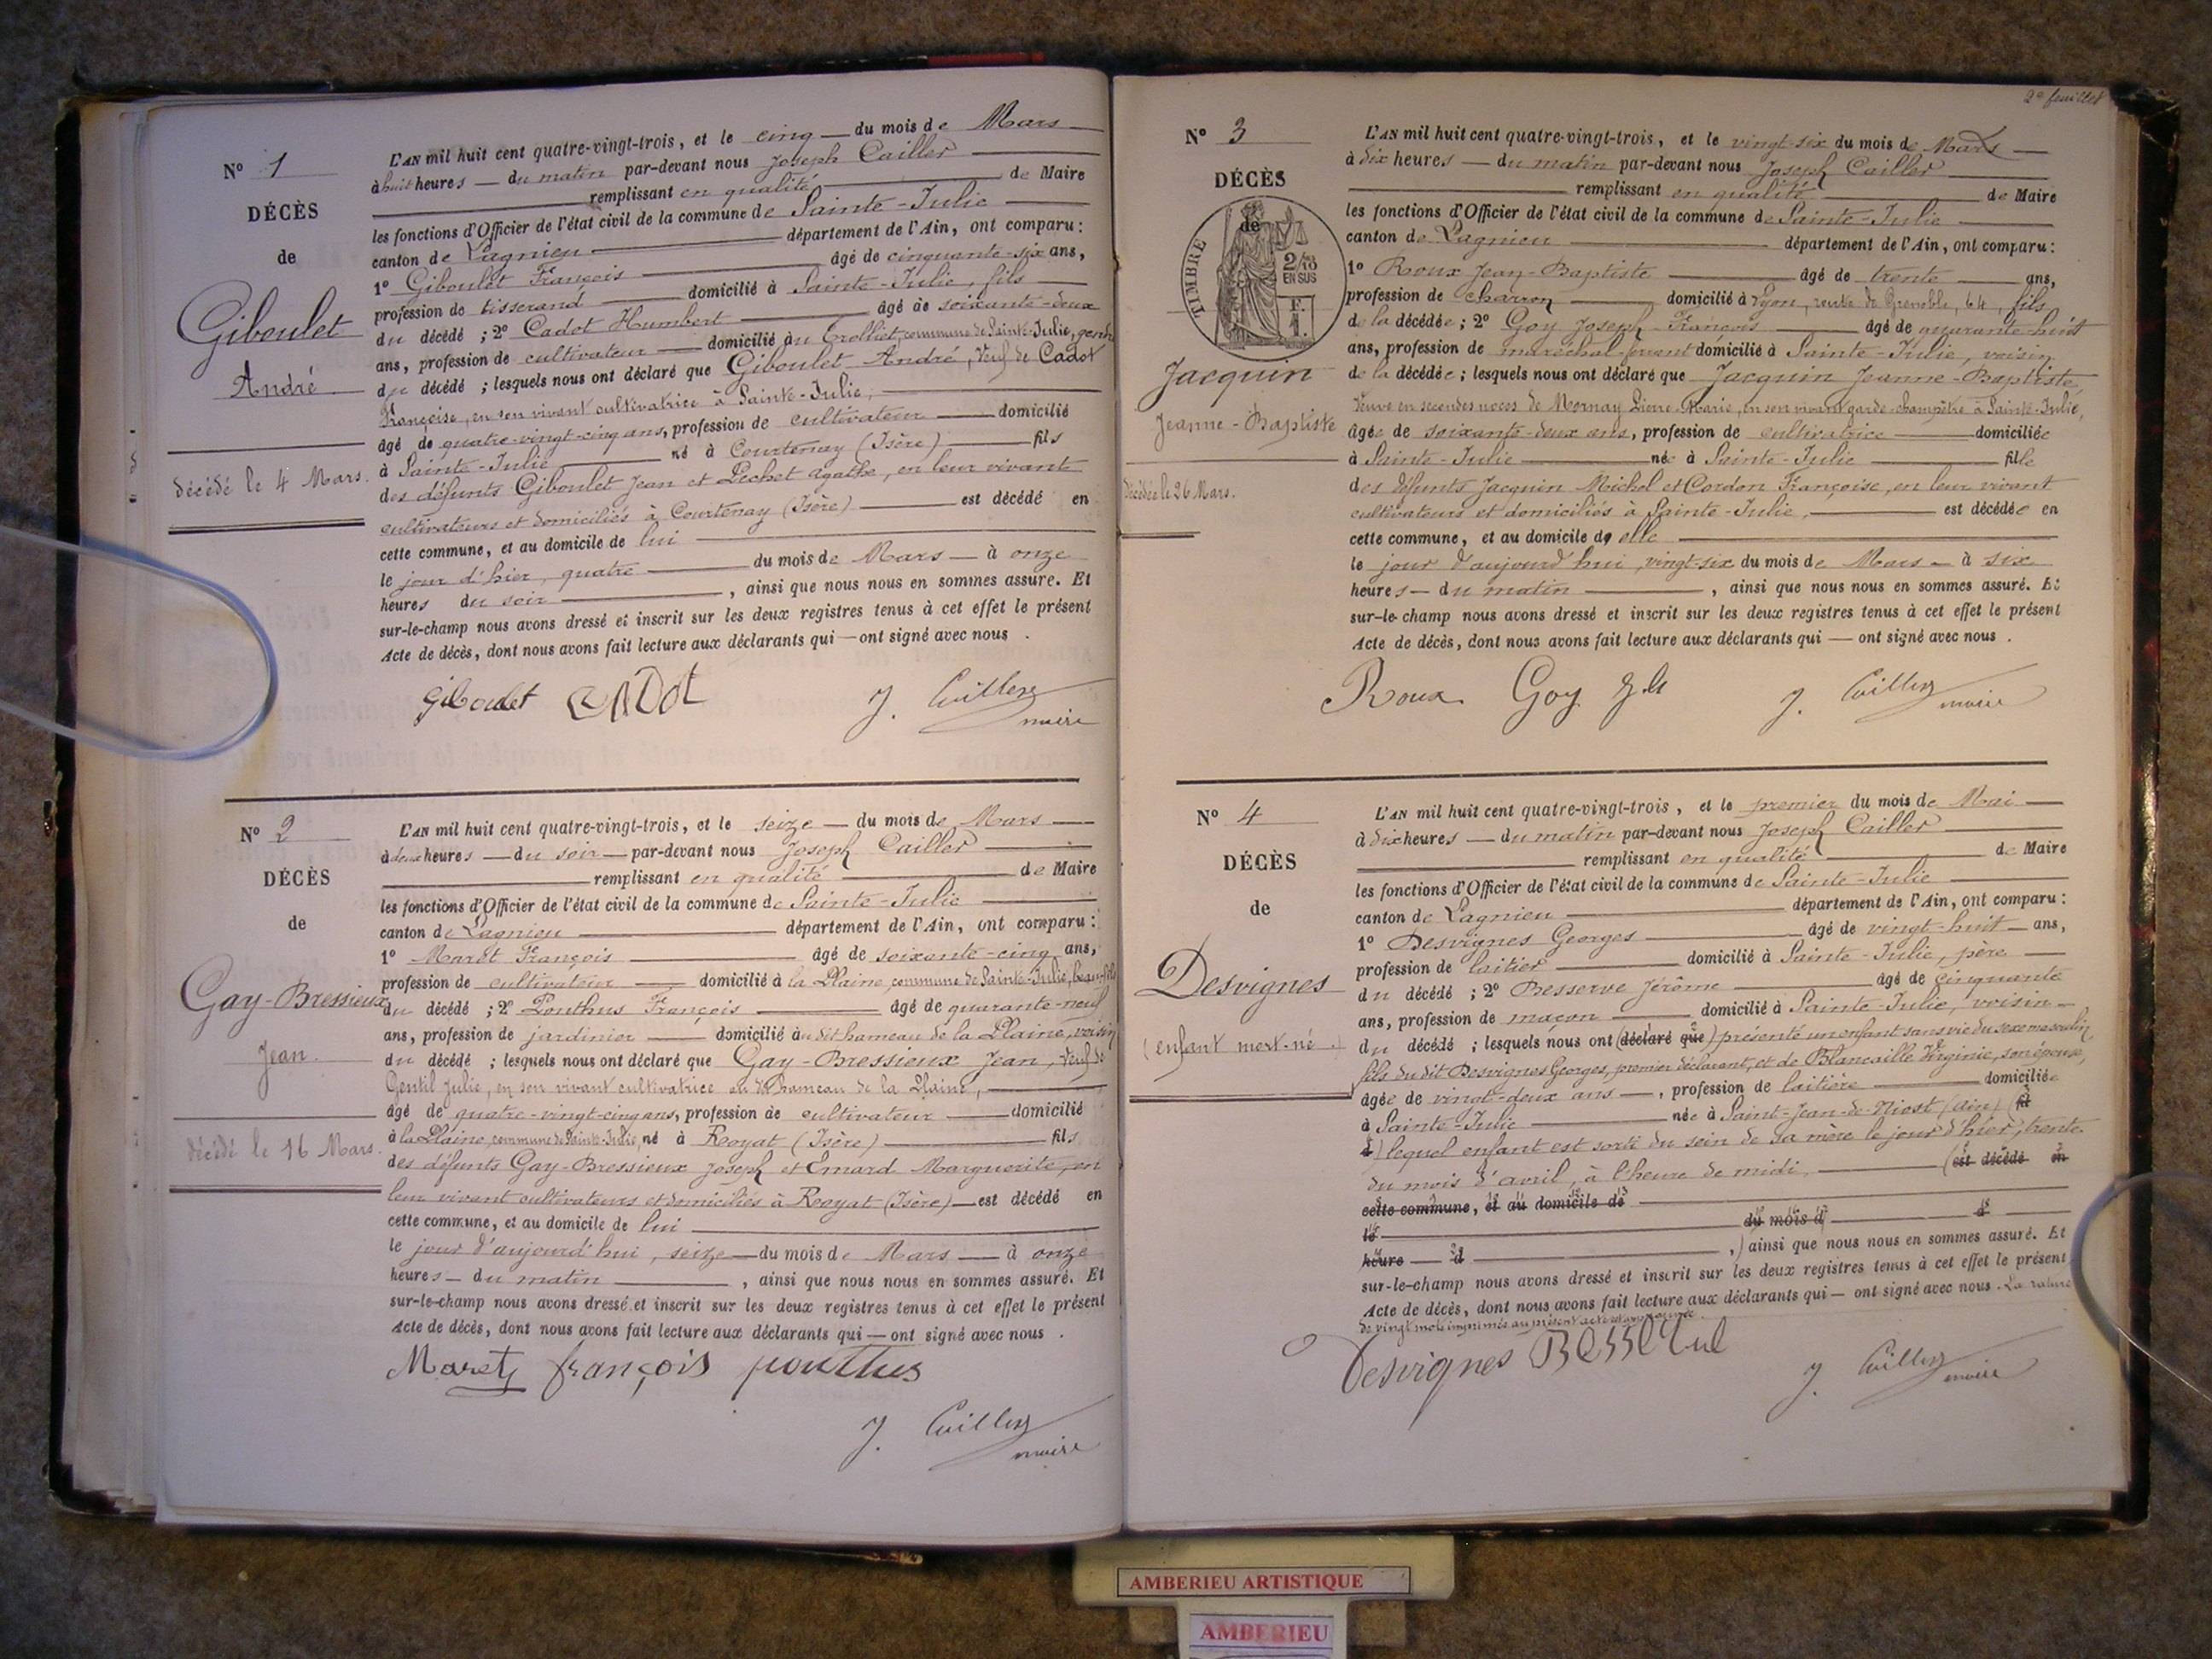 N° 1
DÉCÈS
de
Giboulet
André
décédé le 4 Mars.
L'AN mil huit cent quatre-vingt-trois, et le cinq du mois de Mars
à huit heures du matin par-devant nous Joseph Cailler
remplissant en qualité de Maire
les fonctions d'Officier de l'état civil de la commune de Sainte-Julie
canton de Lagnieu département de l'Ain, ont comparu :
1° Giboulet François âgé de cinquante-six ans,
profession de tisserand domicilié à Sainte-Julie, fils
du décédé ; 2° Cadot Humbert âgé de soixante-deux
ans, profession de cultivateur domicilié au Trolliet, commune de Sainte-Julie, gendre
du décédé ; lesquels nous ont déclaré que Giboulet André, Veuf de Cadot
Françoise, en son vivant cultivatrice à Sainte-Julie,
âgé de quatre-vingt-cinq ans, profession de cultivateur domicilié
à Sainte-Julie né à Courtenay (Isère) fils
des défunts Giboulet Jean et Pechet Agathe, en leur vivant
cultivateurs et domiciliés à Courtenay (Isère) est décédé en
cette commune, et au domicile de lui
le jour d'hier, quatre du mois de Mars à onze
heures du soir , ainsi que nous nous en sommes assuré. Et
sur-le-champ nous avons dressé et inscrit sur les deux registres tenus à cet effet le présent
Acte de décès, dont nous avons fait lecture aux déclarants qui ont signé avec nous .
Giboulet CADOt J. Cailler
maire
N° 2
DÉCÈS
de
Gay-Bressieux
Jean
décédé le 16 Mars.
L'AN mil huit cent quatre-vingt-trois, et le seize du mois de Mars
à deux heures du soir par-devant nous Joseph Cailler
remplissant en qualité de Maire
les fonctions d'Officier de l'état civil de la commune de Sainte-Julie
canton de Lagnieu département de l'Ain, ont comparu :
1° Maret François âgé de soixante-cinq ans,
profession de cultivateur domicilié à la Plaine, commune de Sainte-Julie, beau-fils
du décédé ; 2° Ponthus François âgé de quarante-neuf
ans, profession de jardinier domicilié au dit hameau de la Plaine, voisin
du décédé ; lesquels nous ont déclaré que Gay-Bressieux Jean, Veuf de
Gentil Julie, en son vivant cultivatrice au dit hameau de la Plaine,
âgé de quatre-vingt-cinq ans, profession de cultivateur domicilié
à la Plaine, commune de Sainte-Julie, né à Royat (Isère) fils
des défunts Gay-Bressieux Joseph et Emard Marguerite, en
leur vivant cultivateurs et domiciliés à Royat (Isère) est décédé en
cette commune, et au domicile de lui
le jour d'aujourd'hui, seize du mois de Mars à onze
heures du matin , ainsi que nous nous en sommes assuré. Et
sur-le-champ nous avons dressé et inscrit sur les deux registres tenus à cet effet le présent
Acte de décès, dont nous avons fait lecture aux déclarants qui ont signé avec nous .
Maret françois ponthus
J. Cailler
maire
2e feuillet
N° 3
DÉCÈS
de
TIMBRE
2/10
EN SUS
F.
1.
Jacquin
Jeanne-Baptiste
décédée le 26 Mars.
L'AN mil huit cent quatre-vingt-trois, et le vingt-six du mois de Mars
à dix heures du matin par-devant nous Joseph Cailler
remplissant en qualité de Maire
les fonctions d'Officier de l'état civil de la commune de Sainte-Julie
canton de Lagnieu département de l'Ain, ont comparu :
1° Roux Jean-Baptiste âgé de trente ans,
profession de charron domicilié à Lyon, route de Grenoble, 64, fils
de la décédée ; 2° Goy Joseph-François âgé de quarante-huit
ans, profession de maréchal-ferrant domicilié à Sainte-Julie, voisin
de la décédée ; lesquels nous ont déclaré que Jacquin Jeanne-Baptiste,
Veuve en secondes noces de Mornay Pierre-Marie, en son vivant garde-champêtre à Sainte-Julie,
âgée de soixante-deux ans, profession de cultivatrice domiciliée
à Sainte-Julie née à Sainte-Julie fille
des défunts Jacquin Michel et Cordon Françoise, en leur vivant
cultivateurs et domiciliés à Sainte-Julie, est décédée en
cette commune, et au domicile d'elle
le jour d'aujourd'hui, vingt-six du mois de Mars à six
heures du matin , ainsi que nous nous en sommes assuré. Et
sur-le-champ nous avons dressé et inscrit sur les deux registres tenus à cet effet le présent
Acte de décès, dont nous avons fait lecture aux déclarants qui ont signé avec nous .
Roux Goy J. Cailler
maire
N° 4
DÉCÈS
de
Desvignes
(enfant mort-né.)
L'AN mil huit cent quatre-vingt-trois, et le premier du mois de Mai
à dix heures du matin par-devant nous Joseph Cailler
remplissant en qualité de Maire
les fonctions d'Officier de l'état civil de la commune de Sainte-Julie
canton de Lagnieu département de l'Ain, ont comparu :
1° Desvignes Georges âgé de vingt-huit ans,
profession de laitier domicilié à Sainte-Julie, père
du décédé ; 2° Besserve Jérôme âgé de cinquante
ans, profession de maçon domicilié à Sainte-Julie, voisin
du décédé ; lesquels nous ont (déclaré que) présenté un enfant sans vie du sexe masculin
fils du dit Desvignes Georges, premier déclarant, et de Blancaille Virginie, son épouse,
âgée de vingt-deux ans , profession de laitière domiciliée
à Sainte-Julie née à Saint-Jean-de-Niost (Ain) (fil
d) lequel enfant est sorti du sein de sa mère le jour d'hier, trente
du mois d'avril, à l'heure de midi, (est décédé en
cette commune, et au domicile de
le du mois d à
heure d ,) ainsi que nous nous en sommes assuré. Et
sur-le-champ nous avons dressé et inscrit sur les deux registres tenus à cet effet le présent
Acte de décès, dont nous avons fait lecture aux déclarants qui ont signé avec nous . La rature
de vingt mots imprimés au présent acte est approuvée.
Desvignes J. Cailler
maire
AMBERIEU ARTISTIQUE
AMBERIEU